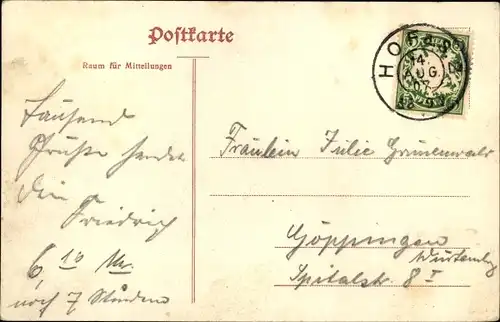 Postkarte
Raum für Mitteilungen
HOF
14.
AUG.
07
Tausend
Grüße sendet
Dein
Friedrich
6,10 Uhr
noch 7 Stunden
Fräulein Julie Grünenwald
Göppingen
Würtemberg
Spitalstr. 8 I